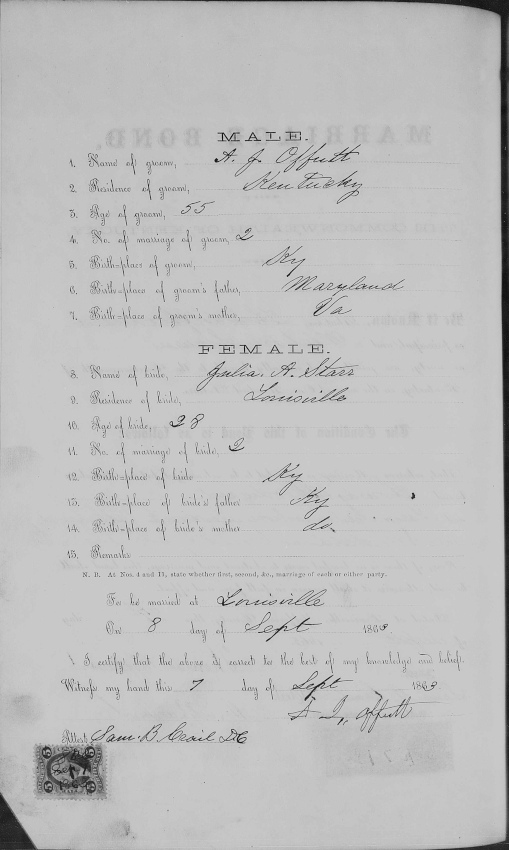 MALE.
1. Name of groom, A. J. Offutt
2. Residence of groom, Kentucky
3. Age of groom, 55
4. No. of marriage of groom, 2
5. Birth-place of groom, Ky
6. Birth-place of groom's father, Maryland
7. Birth-place of groom's mother, Va
FEMALE.
8. Name of bride, Julia. A. Starr
9. Residence of bride, Louisville
10. Age of bride, 28
11. No. of marriage of bride, 2
12. Birth-place of bride Ky
13. Birth-place of bride's father Ky
14. Birth-place of bride's mother do
15. Remarks
N. B. At Nos. 4 and 11, state whether first, second, &c., marriage of each or either party.
To be married at Louisville
On 8 day of Sept 1863
I certify that the above is correct to the best of my knowledge and belief.
Witness my hand this 7 day of Sept 1863
A J, Offutt
Attest Sam. B. Crail DC